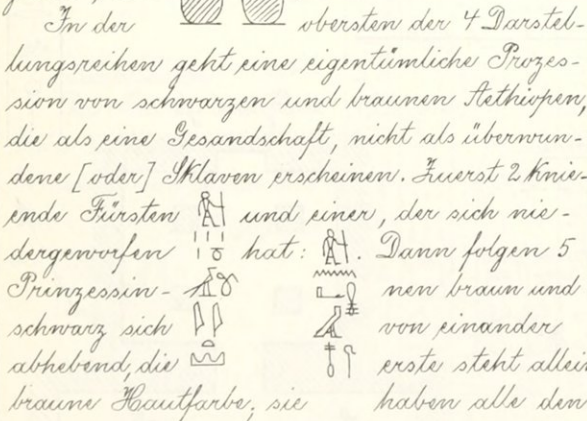 In der obersten der 4 Darstel-
lungsreihen geht eine eigentümliche Prozes-
sion von schwarzen und braunen Aethiopen,
die als eine Gesandschaft, nicht als überwun-
dene [oder] Sklaven erscheinen. Zuerst 2 knie-
ende Fürsten und einer, der sich nie-
dergeworfen hat: . Dann folgen 5
Prinzessin- nen braun und
schwarz sich von einander
abhebend, die erste steht allein
braune Hautfarbe; sie haben alle den